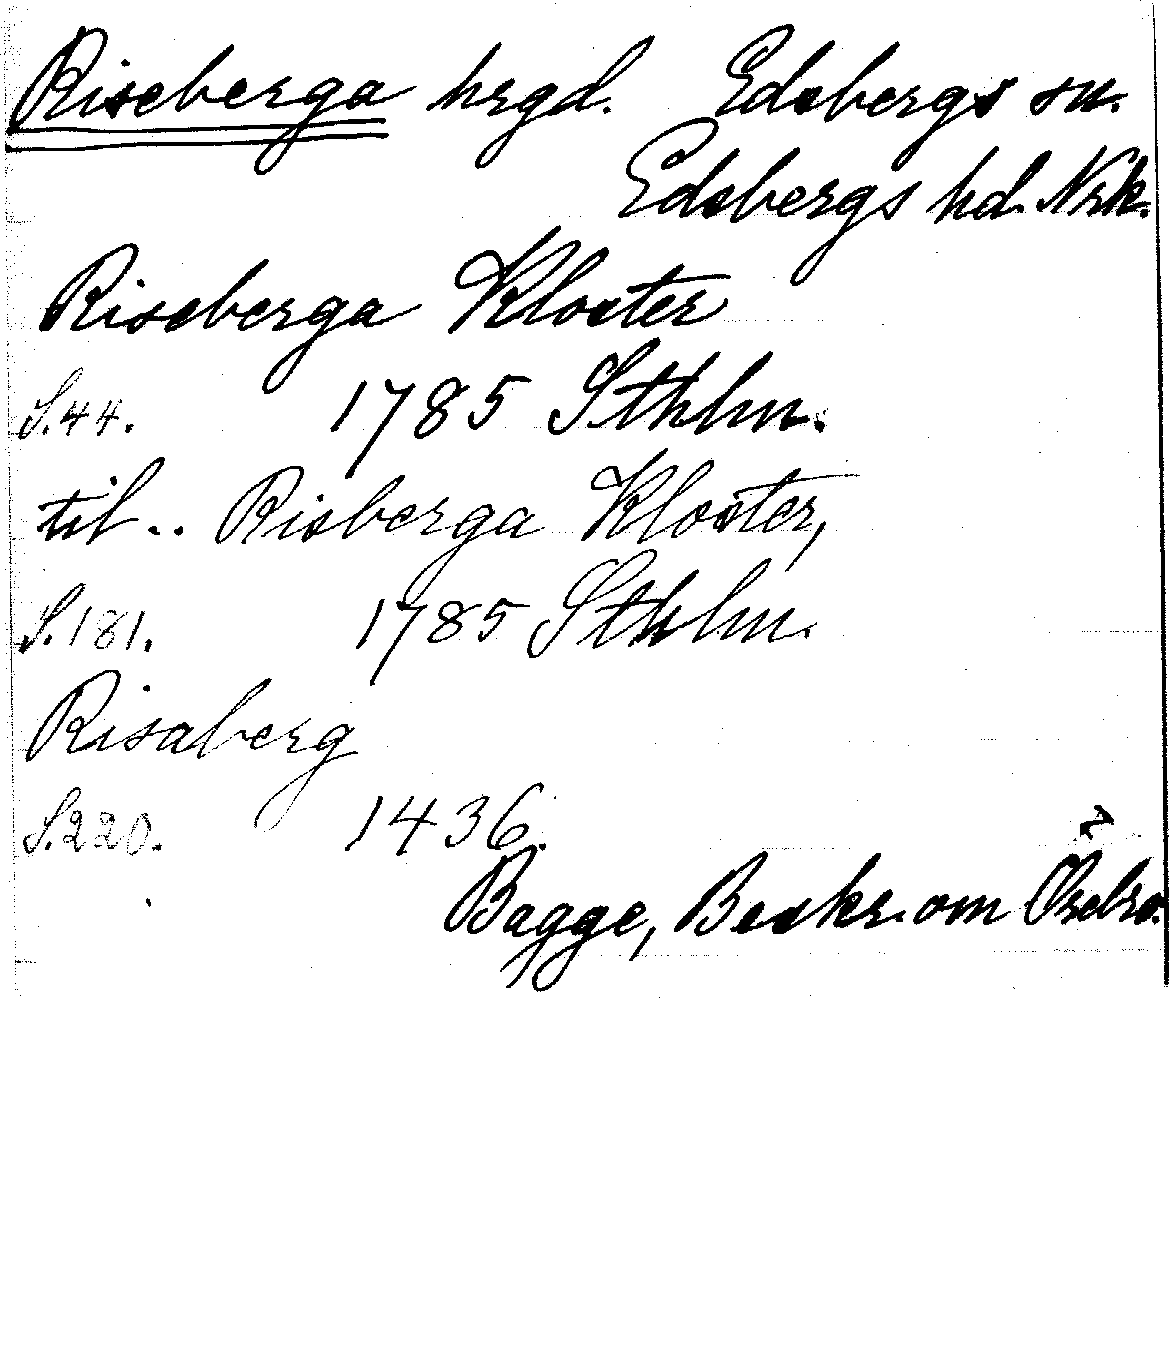 Riseberga hrgd. Edsbergs sn.
Edsbergs hd. Nrk.
Riseberga Kloster
S.44. 1785 Sthlm.
til.. Risberga Kloster,
S.181. 1785 Sthlm.
Risaberg
S.220. 1436.
Bagge, Beskr. om Örebro.